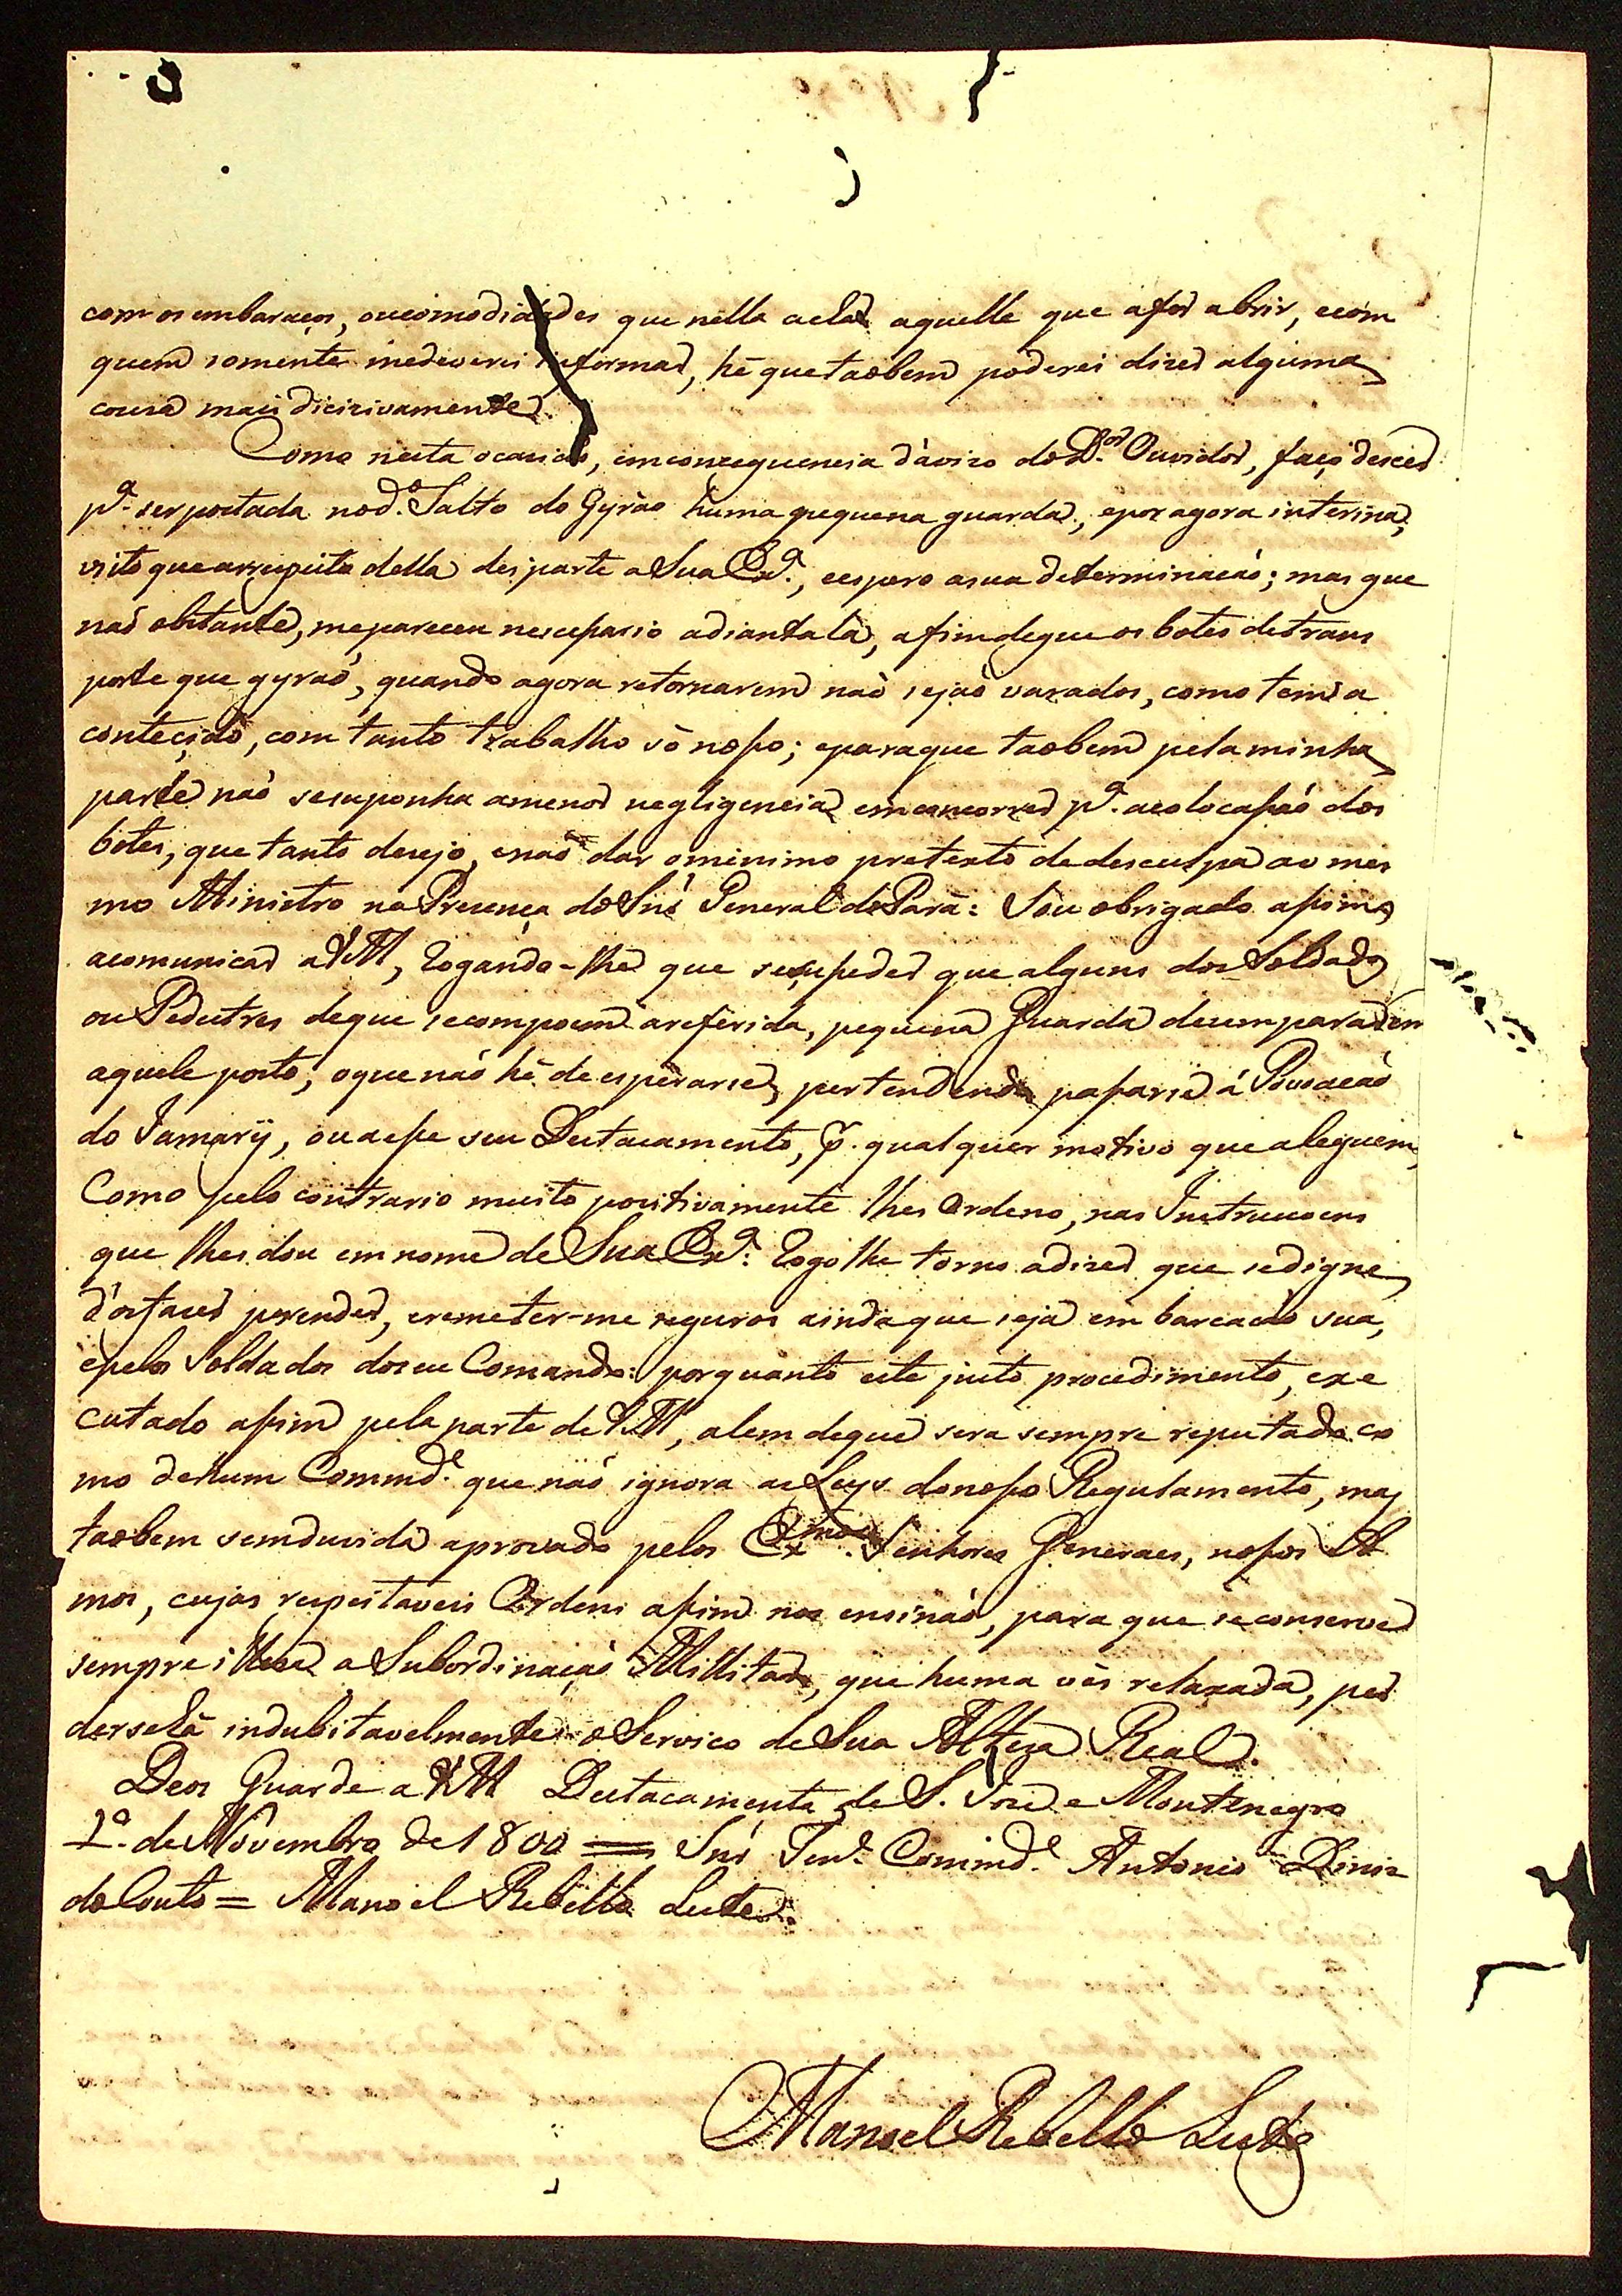 com os embaraços, ou comodidades que nella achar aquelle que a for abrir, e com
quem somente me deverei informar, hé que taobem poderei dizer alguma
couza mais dicizivamente.
Como nesta ocaziaõ, em consequencia d'avizo do D.or Ouvidor, faço descer
p.a ser postada no d.o Salto do Gyrào huma pequena guarda, e por agora interina,
visto que a respeito della dei parte a Sua Ex.a, e espero a sua determinaçaõ; mas que
naõ obstante, me pareceu nescessario adiantala, afim de que os botes de trans
porte que gyraõ, quando agora retornarem naõ sejaõ varados, como tem a
contecido, com tanto trabalho só nosso; e para que taobem pela minha
parte naõ se suponha a menor negligencia em concorrer p.a a colocassaõ dos
botes, que tanto dezejo, e naõ dar o minimo pretexto de desculpa ao mes
mo Ministro na Prezença do Snr̃ General do Pará: Sou obrigado assim
a comunicar a VM, rogando-lhe que se suseder que alguns dos Soldados
ou Pedestres de que se compoem a referida, pequena Guarda dezempararem
aquele posto, o que naõ hé de esperarse, pertendendo passarse á Povoaçaõ
do Jamary, ou a esse seu Destacamento, p.r qualquer motivo que aleguem,
Como pelo contrario muito pozitivamente lhes Ordeno, nas Instrucoens
que lhes dou em nome de Sua Ex.a: Rogo lhe torno a dizer que se digne,
d'os fazer prender, e remeter-me seguros ainda que seja em barcaçaõ sua,
e pelos Soldados do seu Comando: porquanto este justo procedimento, exe
cutado assim pela parte de VM, alem de que sera sempre reputado co
mo de hum Commd.e que naõ ignora as Leys do nosso Regulamento, mas
taobem sem duvida aprovado pelos Ex.mos Senhores Generaes, nossos A
mos, cujas respeitaveis Ordens assim nos ensinaõ, para que se conserve
sempre illeza a Subordinaçaõ Millitar, que huma vès relaxada, per
dersehá indubitavelmente o Servico de Sua Alteza Real.
Deos Guarde a VM Destacamento de S. Joze e Montenegro
1.o de Novembro de 1800 = Snr̃ Ten.e Commd.e Antonio Diniz
do Couto = Manoel Rebello Leite.
Manoel Rebello Leite